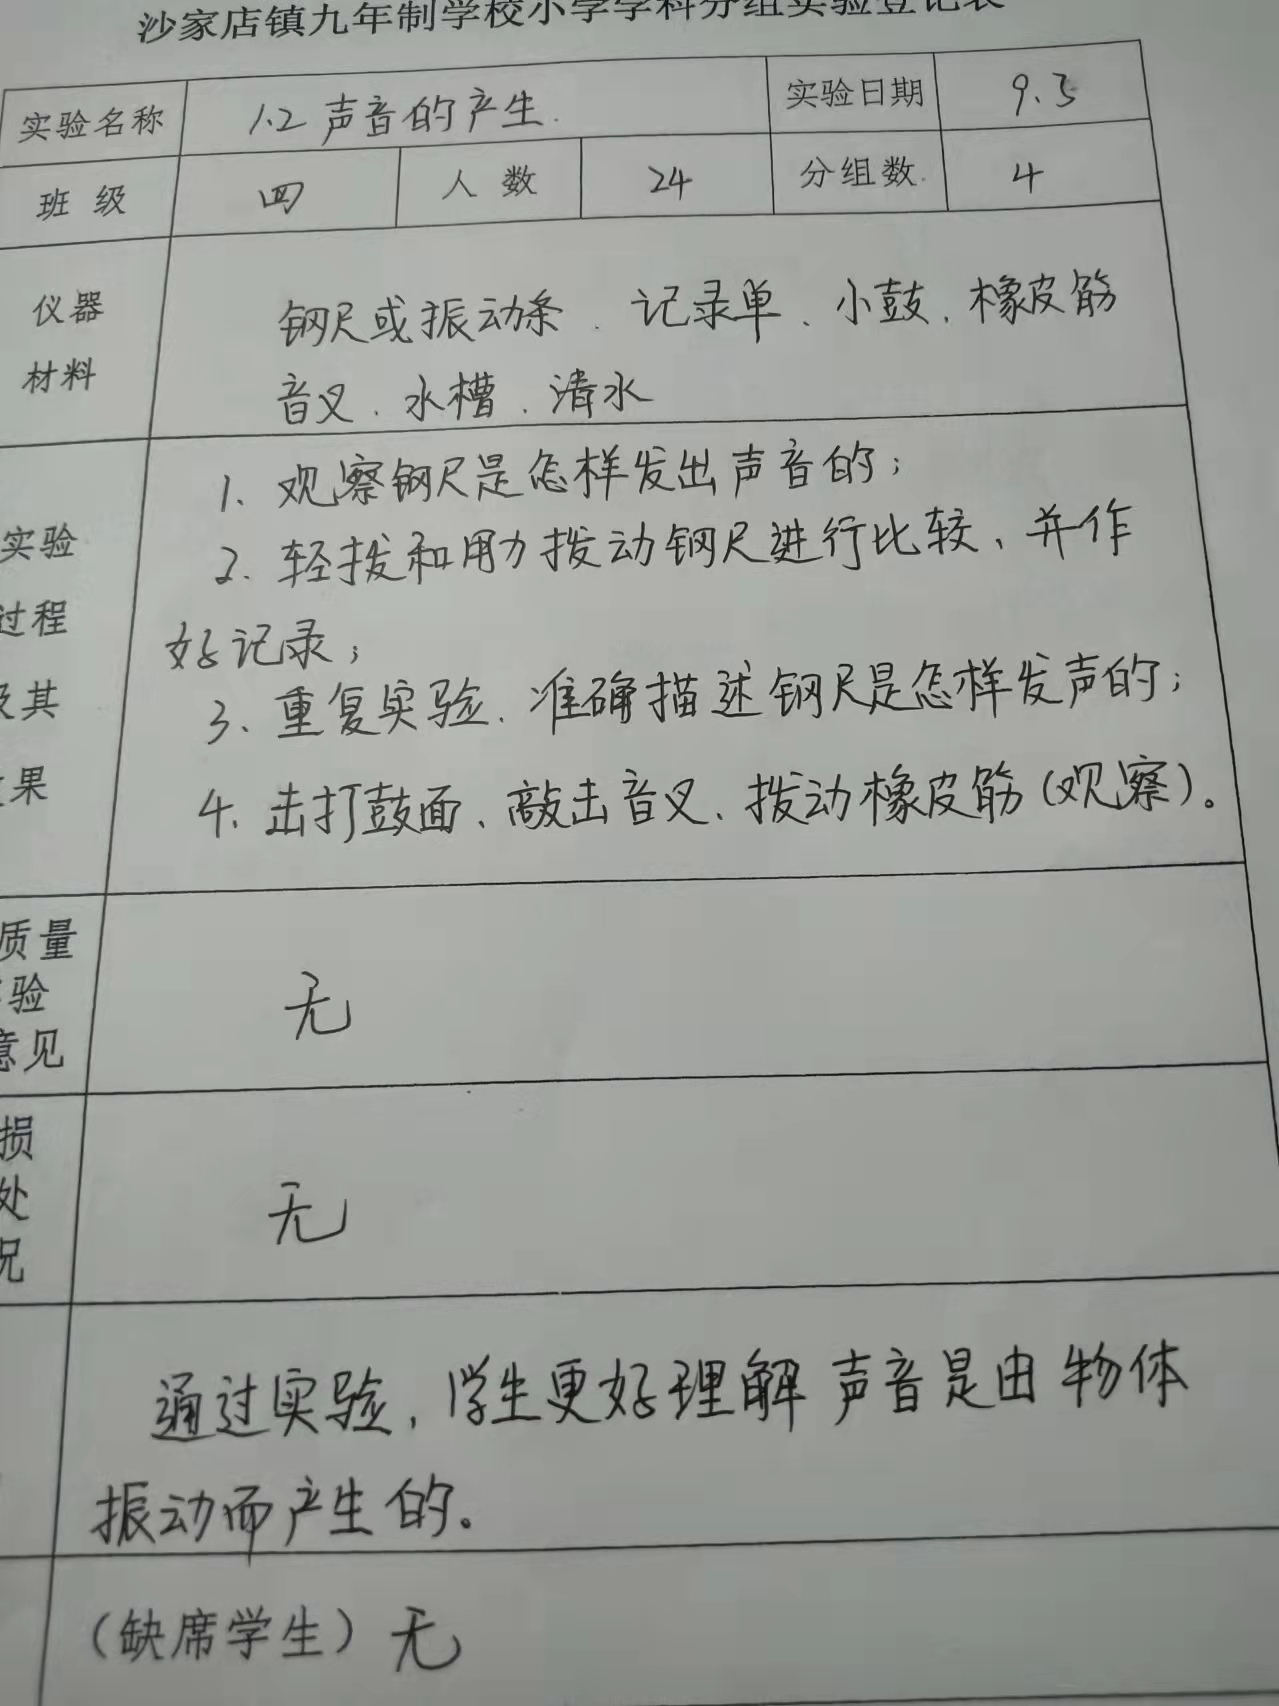 沙家店镇九年制学校小学学科分组实验登记表
实验名称 1.2 声音的产生. 实验日期 9.3
班 级 四 人 数 24 分组数 4
仪器
材料
钢尺或振动条、记录单、小鼓、橡皮筋
音叉、水槽、清水
实验
过程
及其
果
1、观察钢尺是怎样发出声音的；
2、轻拨和用力拨动钢尺进行比较、并作
好记录；
3、重复实验、准确描述钢尺是怎样发声的；
4、击打鼓面、敲击音叉、拨动橡皮筋(观察)。
质量
验
意见
无
损
处
况
无
通过实验,学生更好理解声音是由物体
振动而产生的。
（缺席学生）无